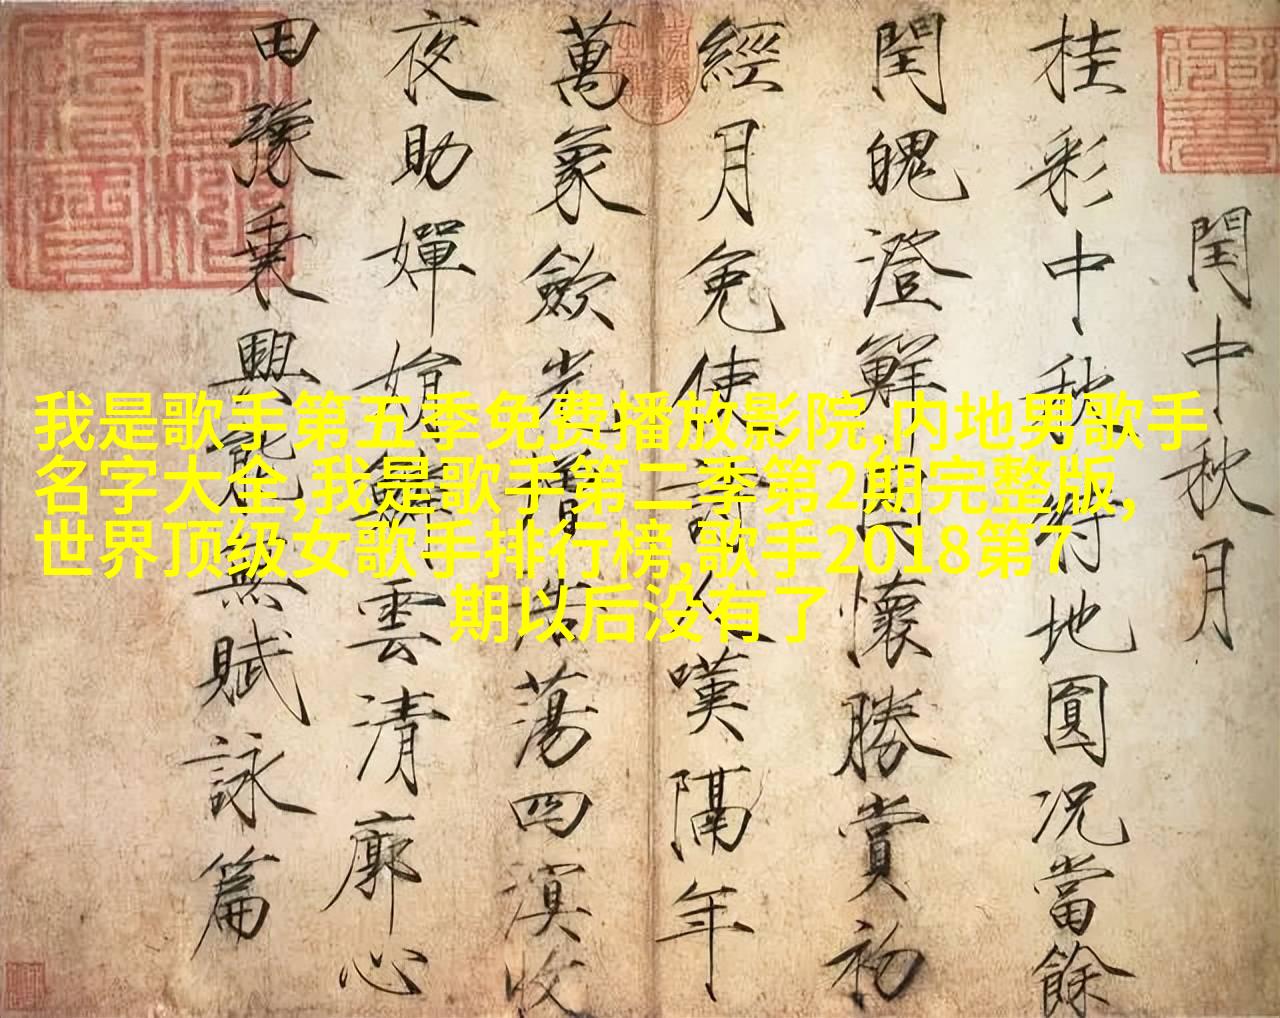 閏中秋月
桂彩中秋特地圓況當餘
閏魄澄鮮因懷勝賞初
經月免使詩人嘆隔年
萬象歛光增浩蕩四溟收
夜助嬋娟鱗雲清廓心
田豫乘興能無賦詠篇
我是歌手第五季免费播放影院,内地男歌手
名字大全,我是歌手第二季第2期完整版,
世界顶级女歌手排行榜,歌手2018第7
期以后没有了